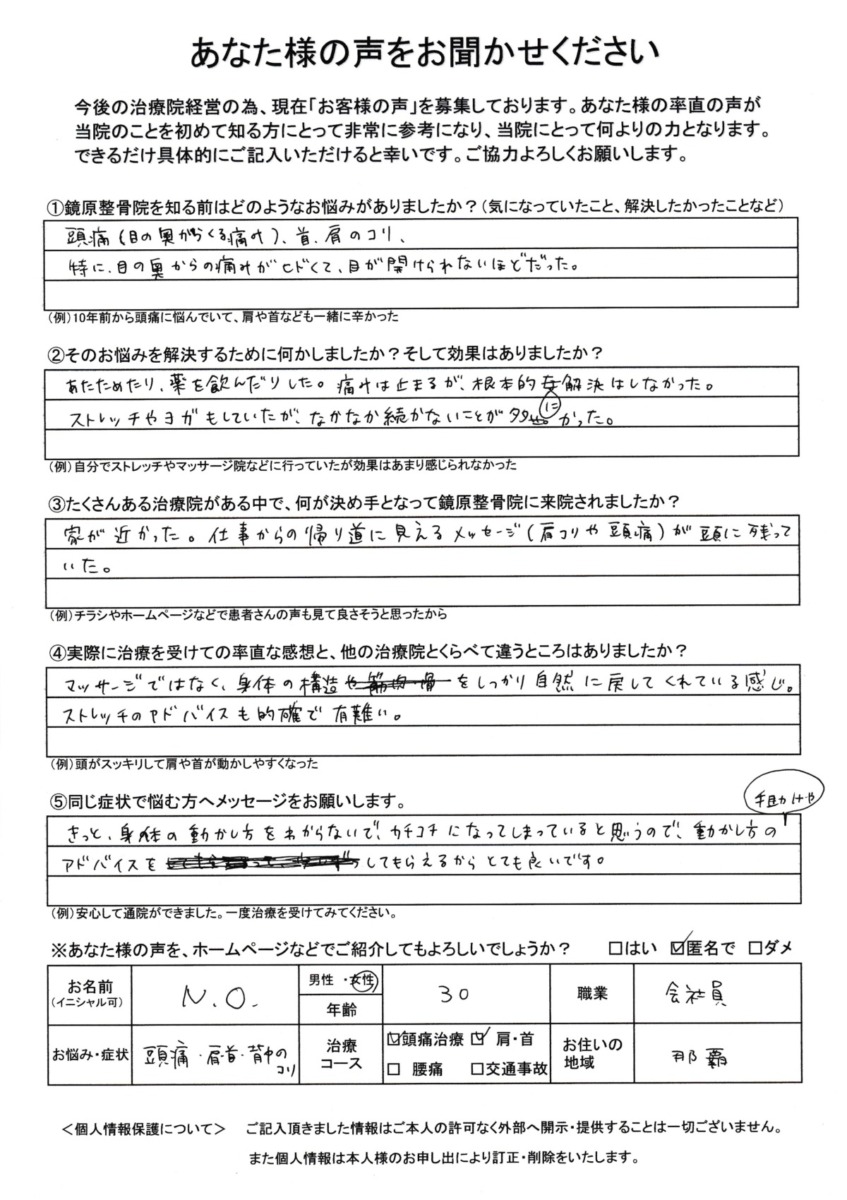 あなた様の声をお聞かせください
今後の治療院経営の為、現在「お客様の声」を募集しております。あなた様の率直の声が
当院のことを初めて知る方にとって非常に参考になり、当院にとって何よりの力となります。
できるだけ具体的にご記入いただけると幸いです。ご協力よろしくお願いします。
①鏡原整骨院を知る前はどのようなお悩みがありましたか？（気になっていたこと、解決したかったことなど）
頭痛（目の奥からくる痛み）、首、肩のコリ、
特に、目の奥からの痛みがヒドくて、目が開けられないほどだった。
（例）10年前から頭痛に悩んでいて、肩や首なども一緒に辛かった
②そのお悩みを解決するために何かしましたか？そして効果はありましたか？
あたためたり、薬を飲んだりした。痛みは止まるが、根本的に解決はしなかった。
ストレッチやヨガもしていたが、なかなか続かないことが多かった。
（例）自分でストレッチやマッサージ院などに行っていたが効果はあまり感じられなかった
③たくさんある治療院がある中で、何が決め手となって鏡原整骨院に来院されましたか？
家が近かった。仕事からの帰り道に見えるメッセージ（肩コリや頭痛）が頭に残って
いた。
（例）チラシやホームページなどで患者さんの声も見て良さそうと思ったから
④実際に治療を受けての率直な感想と、他の治療院とくらべて違うところはありましたか？
マッサージではなく、身体の構造をしっかり自然に戻してくれている感じ。
ストレッチのアドバイスも的確で有難い。
（例）頭がスッキリして肩や首が動かしやすくなった
⑤同じ症状で悩む方へメッセージをお願いします。
手助けや
きっと、身体の動かし方をわからないで、カチコチになってしまっていると思うので、動かし方の
アドバイスをしてもらえるからとても良いです。
（例）安心して通院ができました。一度治療を受けてみてください。
※あなた様の声を、ホームページなどでご紹介してもよろしいでしょうか？ □はい ☑匿名で □ダメ
お名前 （イニシャル可） N.O. 男性・女性 年齢 30 職業 会社員
お悩み・症状 頭痛・肩・首・背中のコリ 治療コース ☑頭痛治療 ☑肩・首 □腰痛 □交通事故 お住いの地域 那覇
＜個人情報保護について＞ ご記入頂きました情報はご本人の許可なく外部へ開示・提供することは一切ございません。
また個人情報は本人様のお申し出により訂正・削除をいたします。